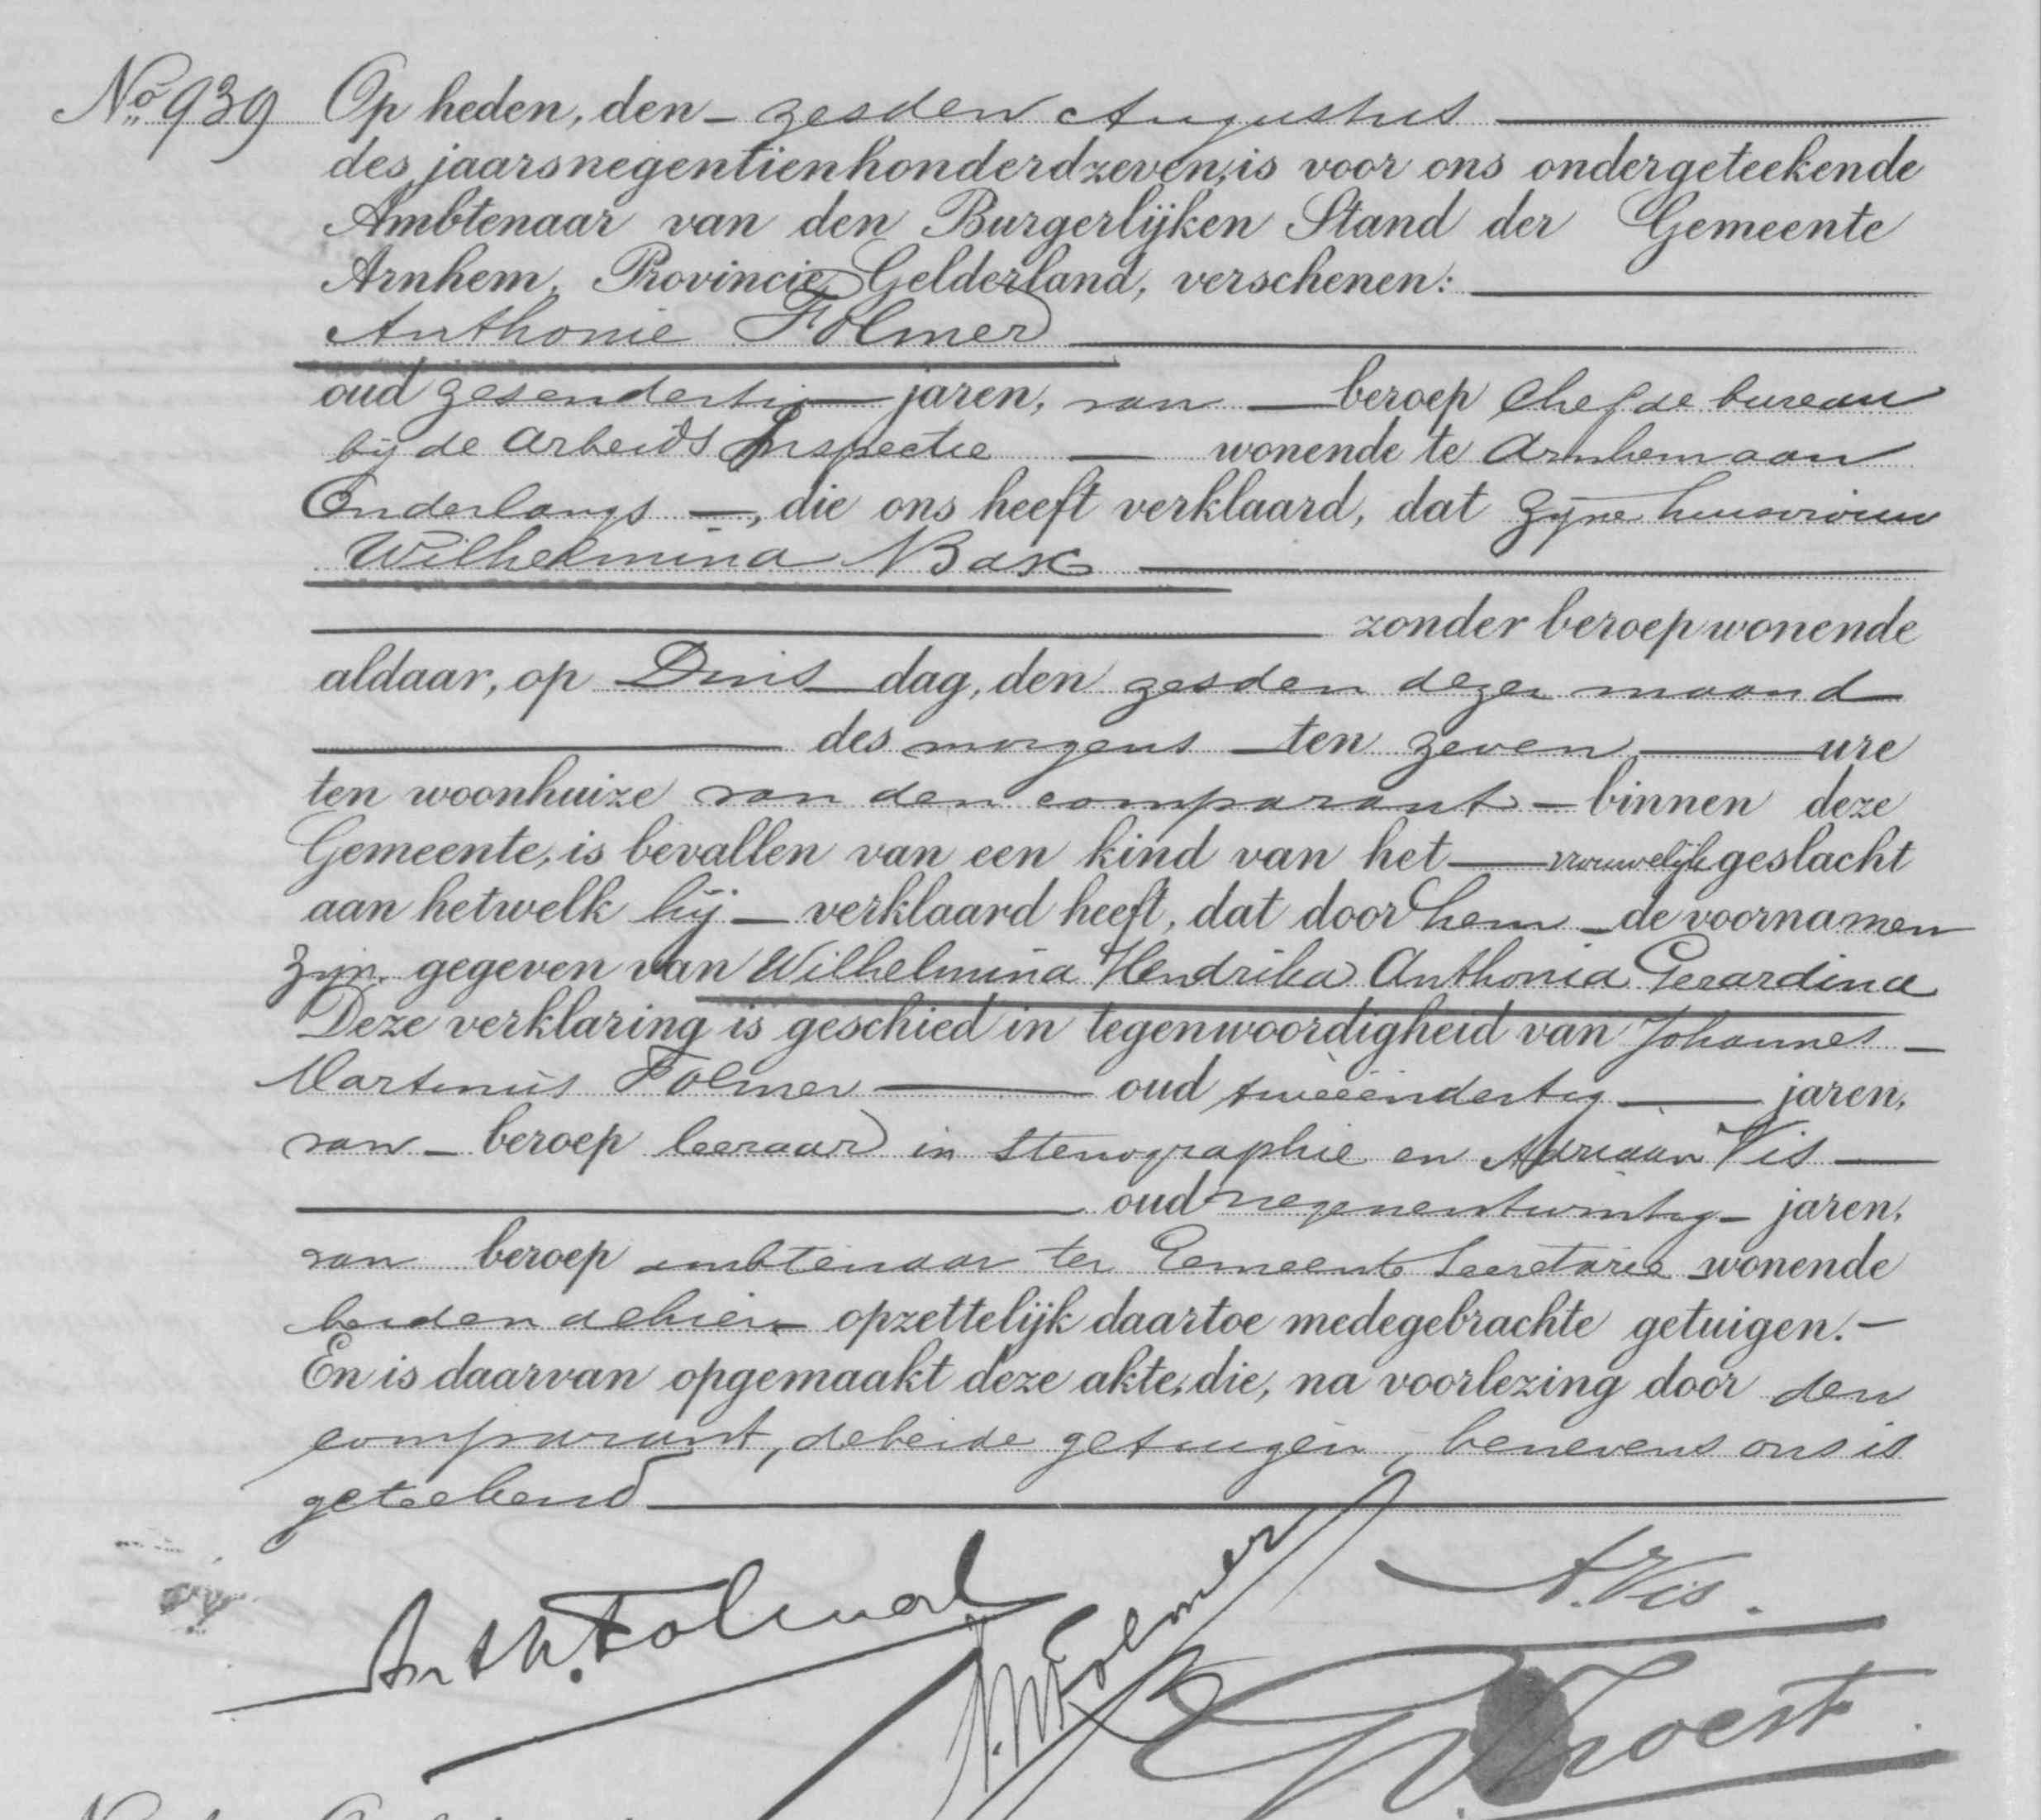 No 939 Op heden, den zesden Augustus
des jaars negentienhonderdzeven, is voor ons ondergeteekende
Ambtenaar van den Burgerlijken Stand der Gemeente
Arnhem, Provincie Gelderland, verschenen:
Anthonie Folmer
oud zesendertig jaren, van beroep Chef de bureau
bij de Arbeids Inspectie wonende te Arnhem aan
Onderlangs, die ons heeft verklaard, dat zijne huisvrouw
Wilhelmina Bax
zonder beroep wonende
aldaar, op Dins dag, den zesden dezer maand
des morgens ten zeven ure
ten woonhuize van den comparant binnen deze
Gemeente, is bevallen van een kind van het vrouwelijk geslacht
aan hetwelk hij verklaard heeft, dat door hem de voornamen
zijn gegeven van Wilhelmina Hendrika Anthonia Gerardina
Deze verklaring is geschied in tegenwoordigheid van Johannes
Martinus Folmer oud tweeëndertig jaren,
van beroep leeraar in stenographie en Adriaan Vis
oud negenentwintig jaren,
van beroep ambtenaar ter Gemeente Secretarie wonende
beiden alhier opzettelijk daartoe medegebrachte getuigen.
En is daarvan opgemaakt deze akte, die, na voorlezing door den
comparant, de beide getuigen, benevens ons is
geteekend
Anth. Folmer
J. M. Folmer
A. Vis.